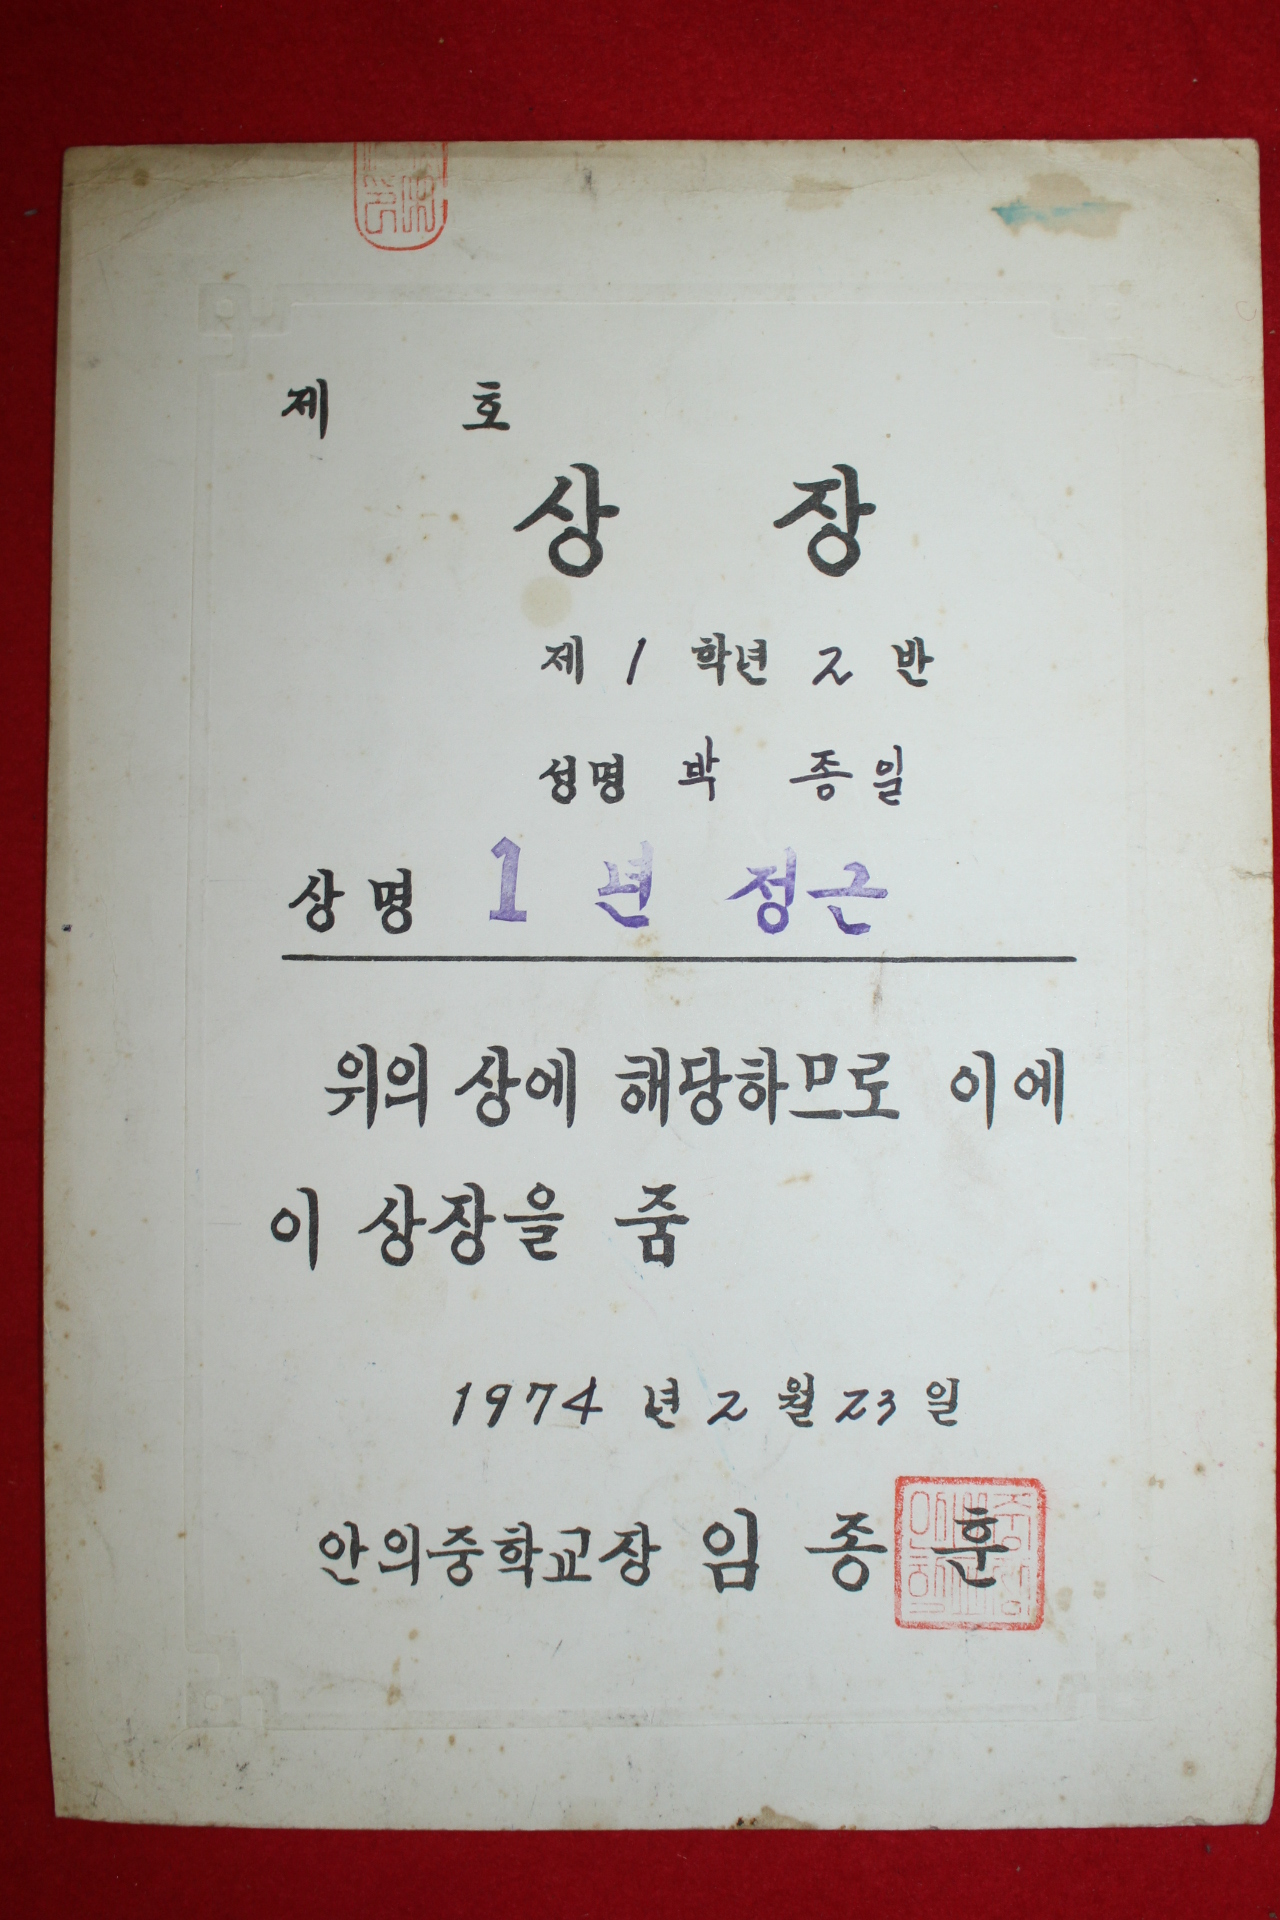 제 호
상 장
제 1 학년 2 반
성명 박 종일
상명 1 년 정근
위의 상에 해당하므로 이에
이 상장을 줌
1974 년 2 월 23 일
안의중학교장 임 종 훈